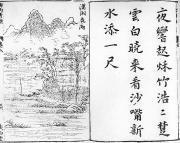 夜響起踈竹浩〻楚
雲白曉來看沙嘴新
水添一尺
瀟湘夜雨